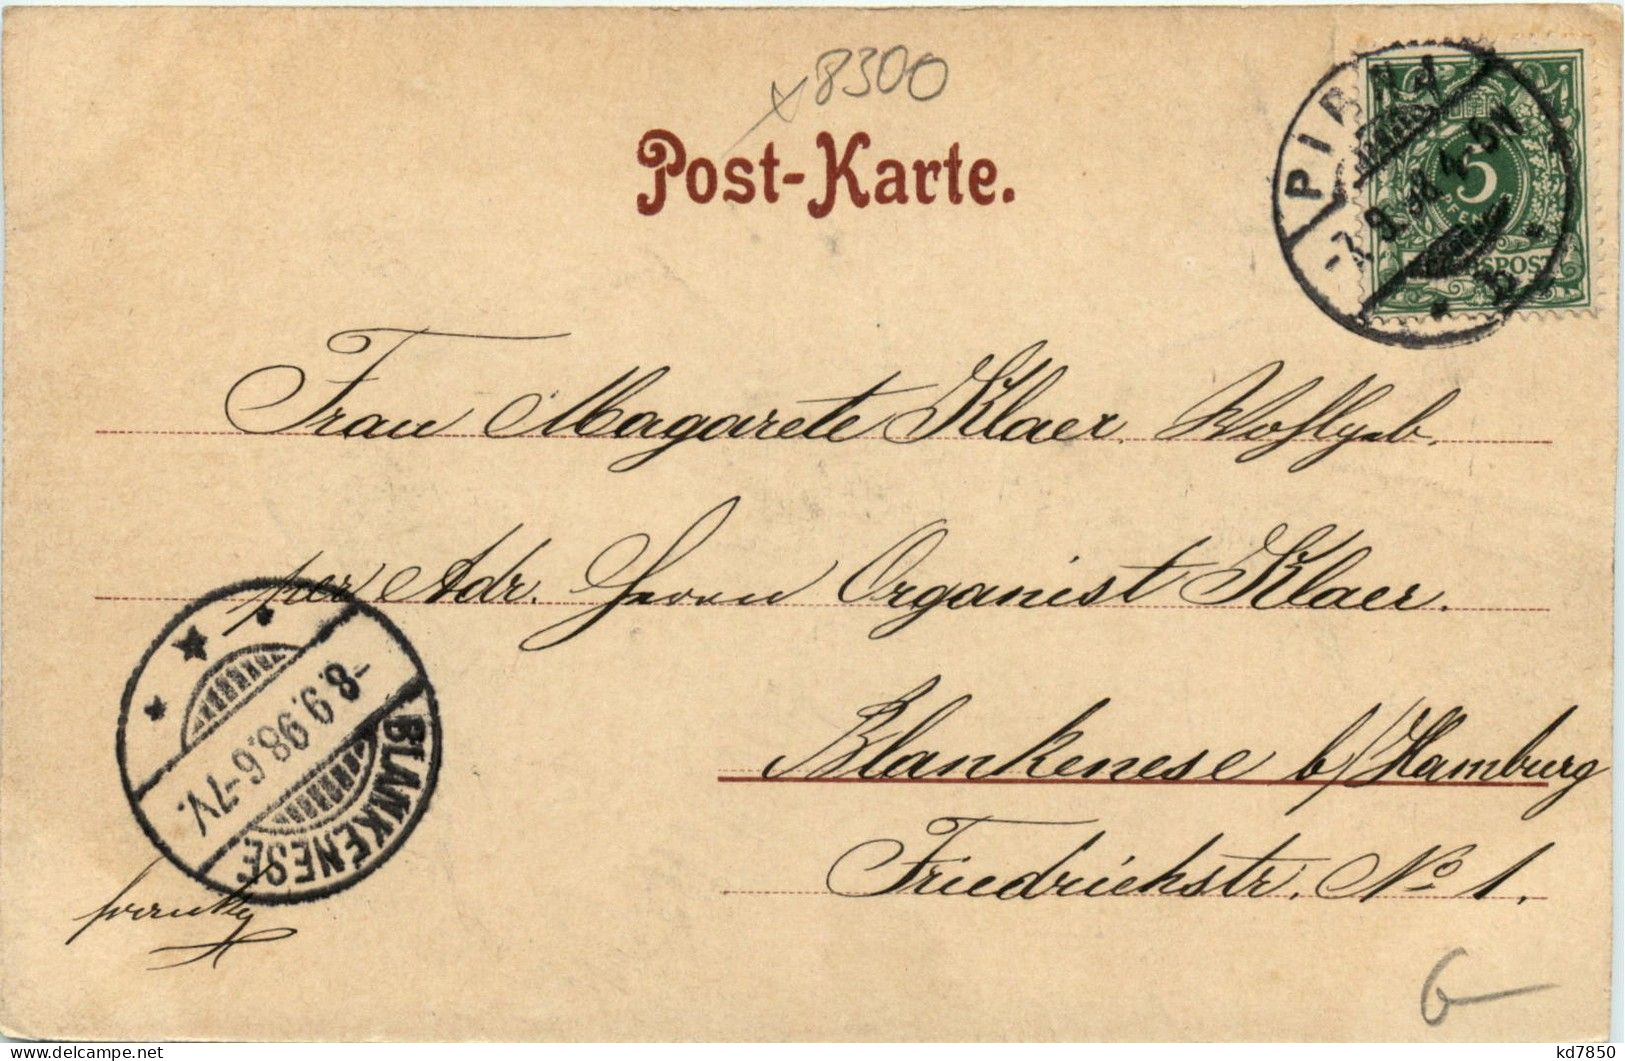 8300
Post-Karte.
PIRNA
7.9.98. 4-5N
b
5
PFENNIG
REICHSPOST
Frau Magarete Klaer. Wohlgeb.
per Adr. Herrn Organist Klaer.
Blankenese b/Hamburg
Friedrichstr. No 1.
BLANKENESE.
8.9.98.6-7V.
franko
6
delcampe.net
kd7850